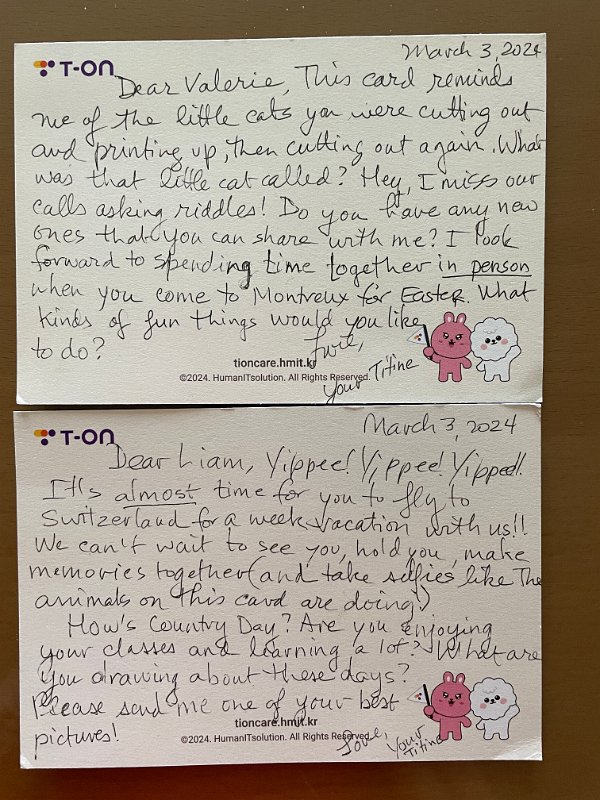 T-ON
March 3, 2024
Dear Valerie, This card reminds
me of the little cats you were cutting out
and printing up, then cutting out again. What
was that little cat called? Hey, I miss our
calls asking riddles! Do you have any new
ones that you can share with me? I look
forward to spending time together in person
when you come to Montreux for Easter. What
kinds of fun things would you like
to do?
Love,
Your Titine
tioncare.hmit.kr
©2024. HumanITsolution. All Rights Reserved.
T-ON
March 3, 2024
Dear Liam, Yippee! Yippee! Yippee!!
It's almost time for you to fly to
Switzerland for a week vacation with us!!
We can't wait to see you, hold you, make
memories together (and take selfies like the
animals on this card are doing)
How's Country Day? Are you enjoying
your classes and learning a lot? What are
you drawing about these days?
Please send me one of your best
pictures!
Love, Your
Titine
tioncare.hmit.kr
©2024. HumanITsolution. All Rights Reserved.